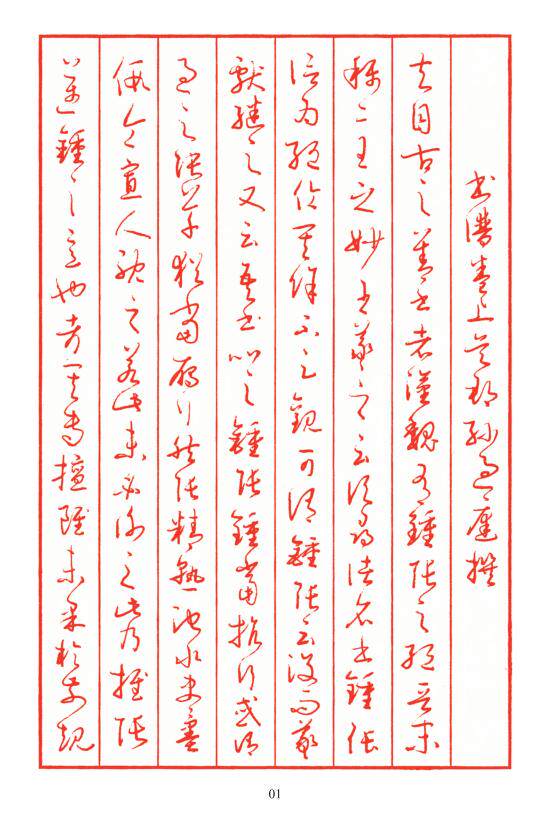 書譜卷上吳郡孫過庭撰
夫自古之善書者漢魏有鍾張之絕晉末
稱二王之妙王羲之云頃尋諸名書鍾張
信為絕倫其餘不足觀可謂鍾張云沒而羲
獻繼之又云吾書比之鍾張鍾當抗行或謂
過之張草猶當鴈行然張精熟池水盡墨
假令寡人耽之若此未必謝之此乃推張
邁鍾之意也考其專擅雖未果於前規
01